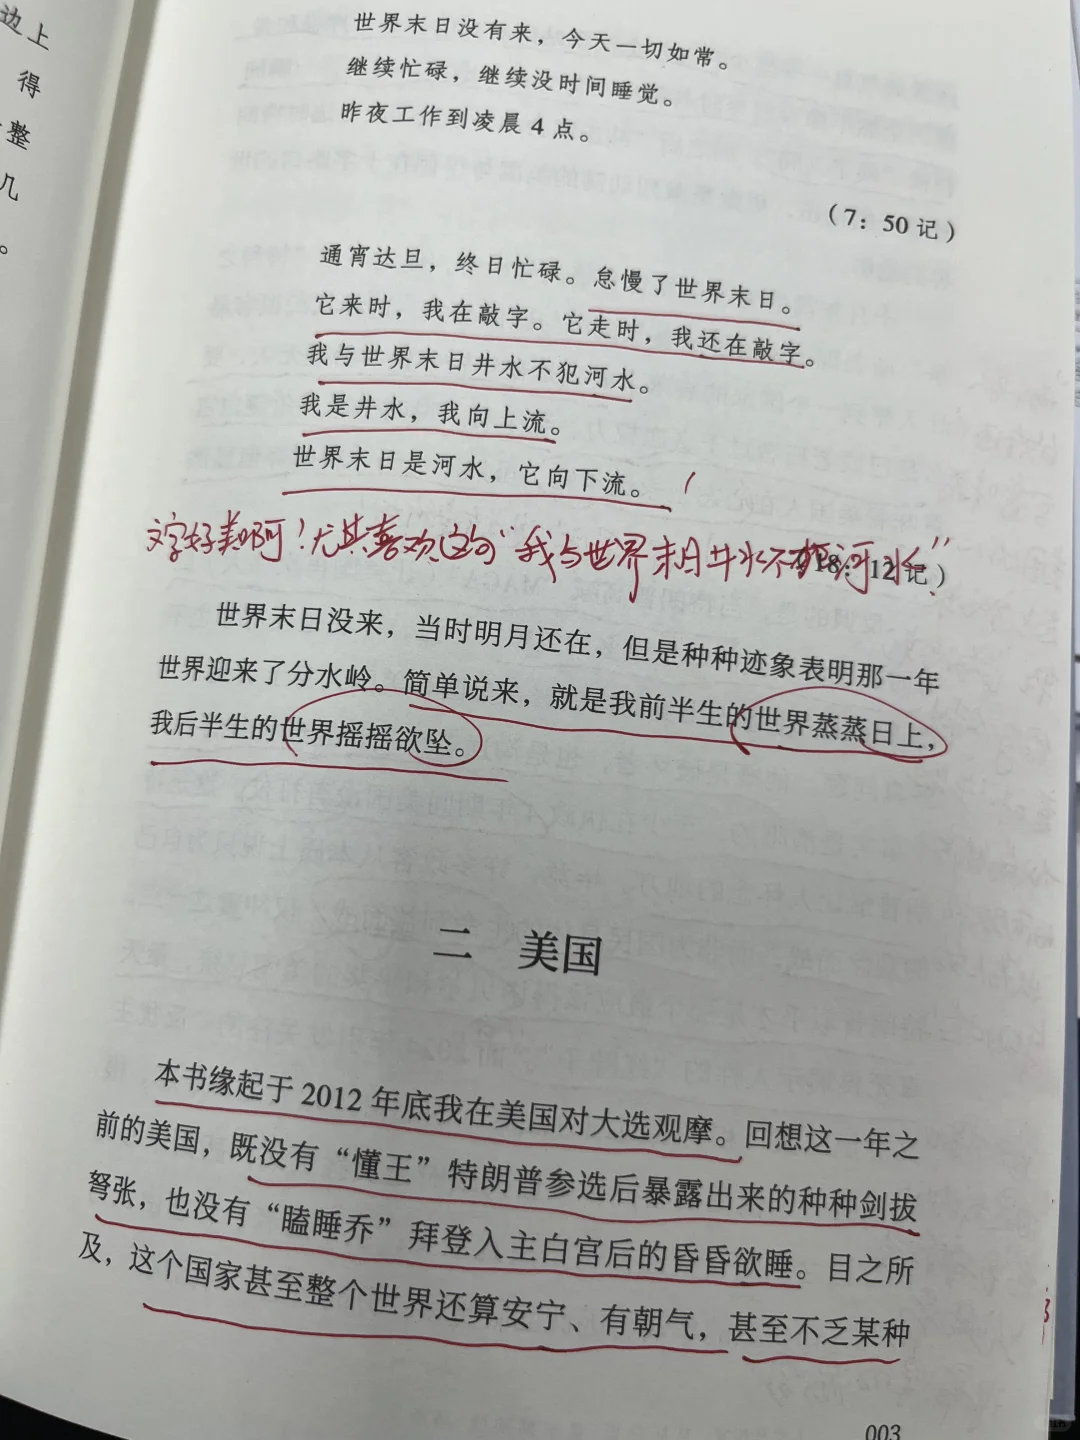 边上
得
整
几
。
世界末日没有来，今天一切如常。
继续忙碌，继续没时间睡觉。
昨夜工作到凌晨 4 点。
（7：50 记）
通宵达旦，终日忙碌。怠慢了世界末日。
它来时，我在敲字。它走时，我还在敲字。
我与世界末日井水不犯河水。
我是井水，我向上流。
世界末日是河水，它向下流。
文字好美啊！尤其喜欢这句“我与世界末日井水不犯河水”
18：12 记）
世界末日没来，当时明月还在，但是种种迹象表明那一年
世界迎来了分水岭。简单说来，就是我前半生的世界蒸蒸日上，
我后半生的世界摇摇欲坠。
二 美国
本书缘起于 2012 年底我在美国对大选观摩。回想这一年之
前的美国，既没有“懂王”特朗普参选后暴露出来的种种剑拔
弩张，也没有“瞌睡乔”拜登入主白宫后的昏昏欲睡。目之所
及，这个国家甚至整个世界还算安宁、有朝气，甚至不乏某种
003